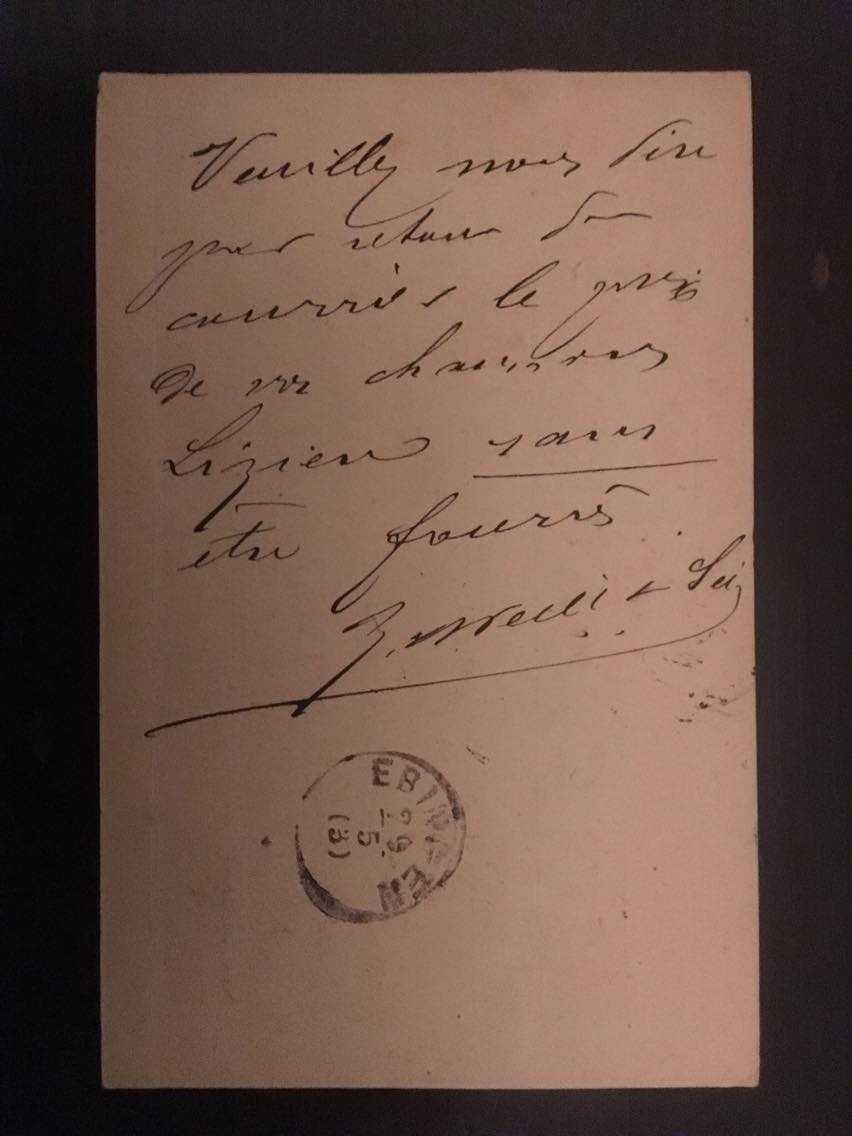 Veuillez nous dire
par retour du
courrier le prix
de vos chaussons
Lizieu sans
être fourrés
& Sei
EBINGEN
29
5
(3)